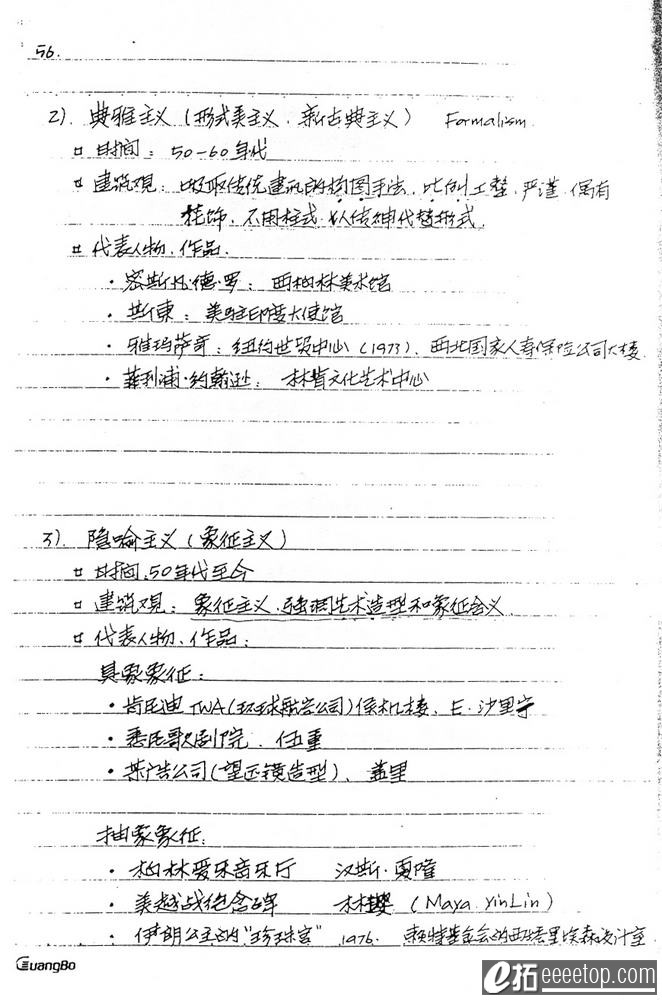 56.
2). 典雅主义（形式美主义、新古典主义） Formalism
¤ 时间：50-60年代
¤ 建筑观：吸取传统建筑的构图手法，比例工整，严谨，偶有
花饰，不用柱式，以传神代替形式
¤ 代表人物、作品.
· 密斯·凡·德·罗：西柏林美术馆
· 斯东：美驻印度大使馆
· 雅玛萨奇：纽约世贸中心（1973）、西北国家人寿保险公司大楼
· 菲利浦·约翰逊：林肯文化艺术中心
3). 隐喻主义（象征主义）
¤ 时间：50年代至今
¤ 建筑观：象征主义，强调艺术造型和象征含义
¤ 代表人物、作品：
具象象征：
· 肯尼迪TWA(环球航空公司)候机楼、E·沙里宁
· 悉尼歌剧院、伍重
· 某广告公司(望远镜造型)、盖里
抽象象征：
· 柏林爱乐音乐厅 汉斯·夏隆
· 美越战纪念碑 林璎（Maya YinLin）
· 伊朗公主的“珍珠宫” 1976. 赖特基金会的西塔里埃森设计室
GuangBo
e拓 eeeetop.com